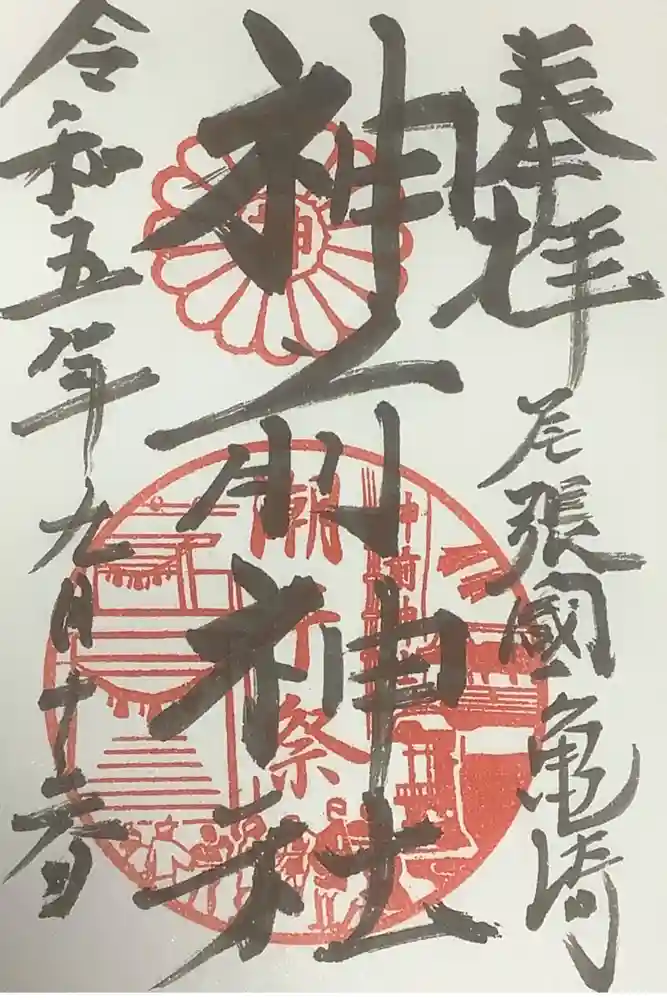 奉拝
尾張國亀崎
神前神社
令和五年九月十六日
潮干祭